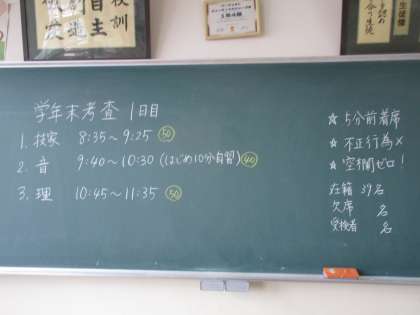 校訓
自主
学年末考査 1日目
1. 技家 8:35～9:25 50
2. 音 9:40～10:30 (はじめ10分自習) 40
3. 理 10:45～11:35 50
☆ 5分前着席
☆ 不正行為×
☆ 空欄ゼロ!
在籍 39名
欠席 名
受検者 名